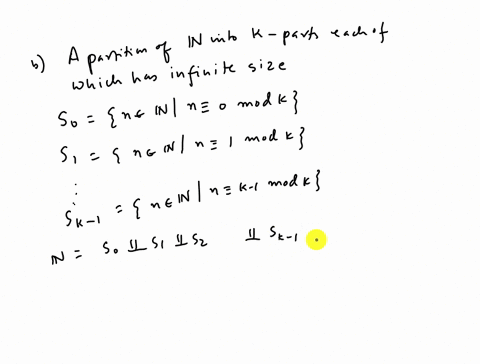 b) A partition of ℕ into k-parts each of
which has infinite size
S₀ = {n ∈ ℕ | n ≡ 0 mod k}
S₁ = {n ∈ ℕ | n ≡ 1 mod k}
⋮
Sₖ₋₁ = {n ∈ ℕ | n ≡ k-1 mod k}
ℕ = S₀ ⨿ S₁ ⨿ S₂ ⨿ Sₖ₋₁ .